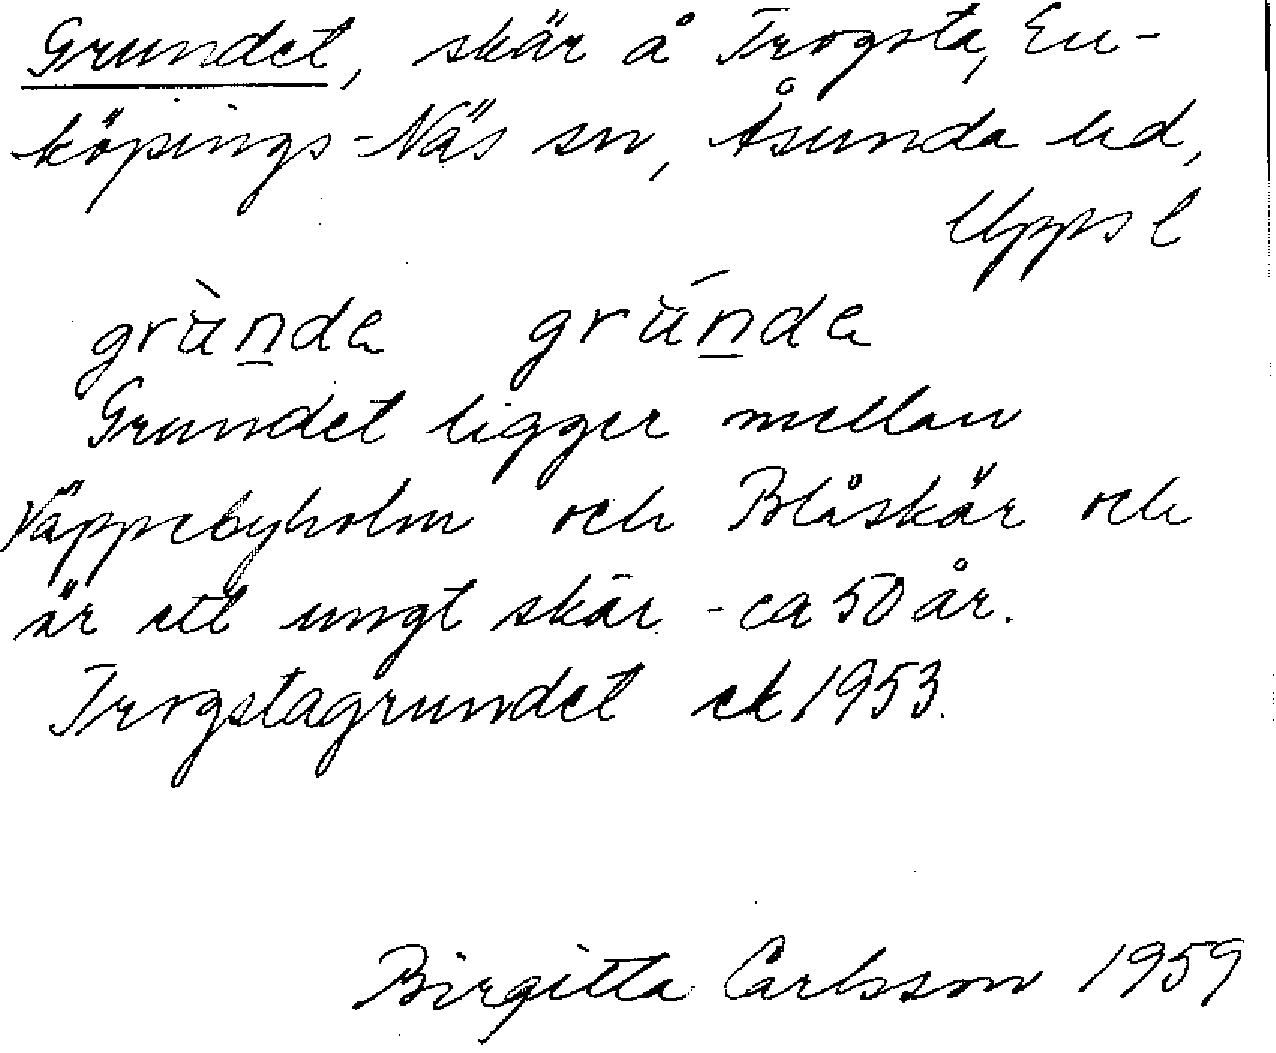 Grundet, skär å Trogsta, En-
köpings-Näs sn, Åsunda hd,
Upps l
Grundet ligger mellan
Väppebyholm och Blåskär och
är ett ungt skär - ca 50 år.
Trogstagrundet ek 1953.
Birgitta Carlsson 1959